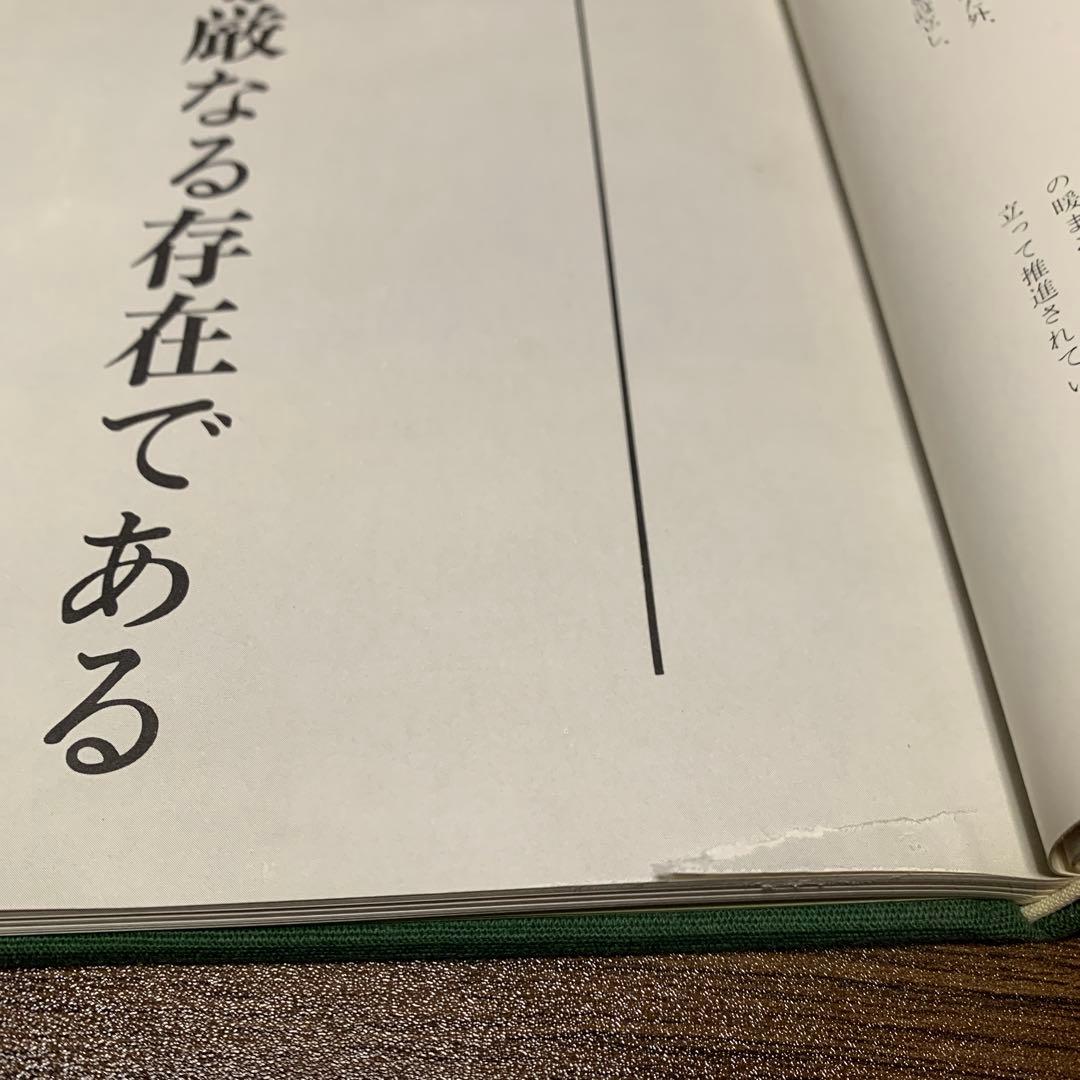 の暖ま
立って推進されてい
厳なる存在である